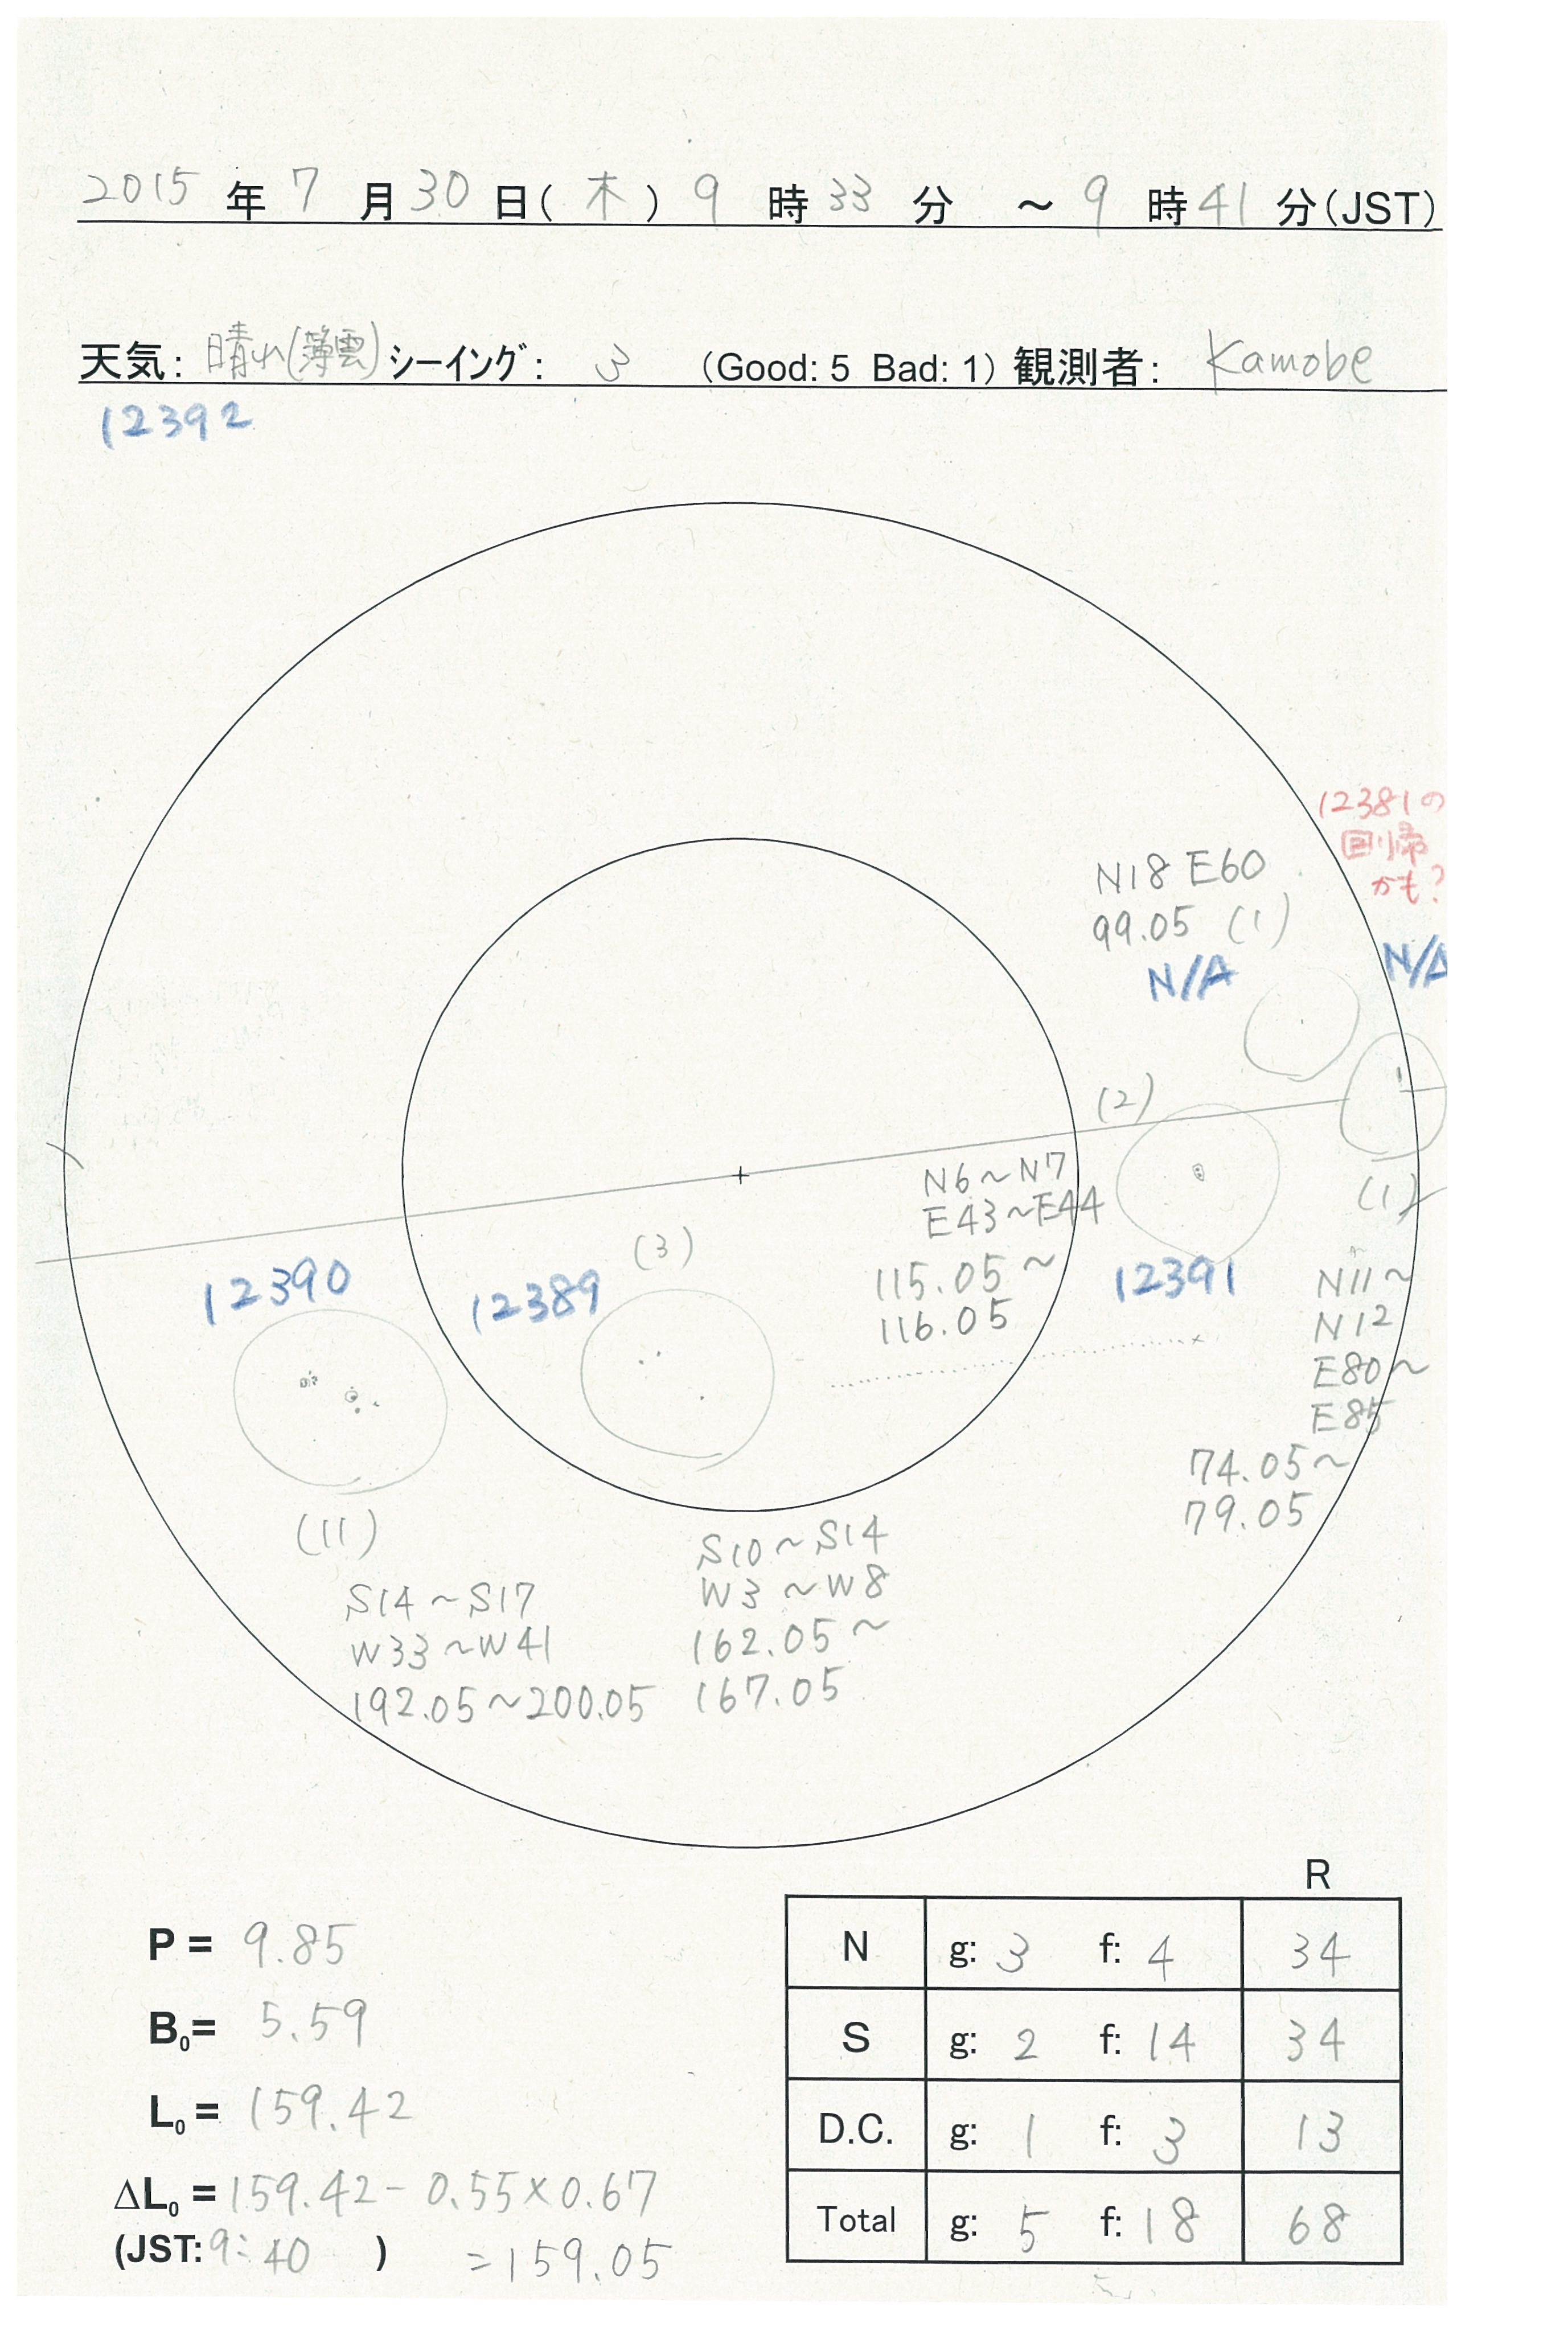 2015 年 7 月 30 日( 木 ) 9 時 33 分 ～ 9 時 41 分(JST)
天気: 晴れ(薄雲) シーイング: 3 (Good: 5 Bad: 1) 観測者: Kamobe
12392
12381の
回帰
かも?
N18 E60
99.05 (1)
N/A
N/A
(2)
N6～N7
E43～E44
115.05～
116.05
12391
(1)
N11～
N12
E80～
E85
74.05～
79.05
12390
12389
(3)
(11)
S14～S17
W33～W41
192.05～200.05
S10～S14
W3～W8
162.05～
167.05
P = 9.85
B0= 5.59
L0 = 159.42
ΔL0 = 159.42 - 0.55×0.67
(JST: 9:40 ) =159.05
R
N g: 3 f: 4 34
S g: 2 f: 14 34
D.C. g: 1 f: 3 13
Total g: 5 f: 18 68